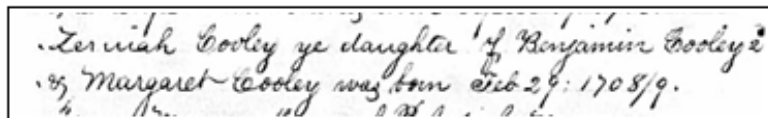 Zeruiah Cooley ye daughter of Benjamin Cooley 2
& Margaret Cooley was born Feb 29: 1708/9.